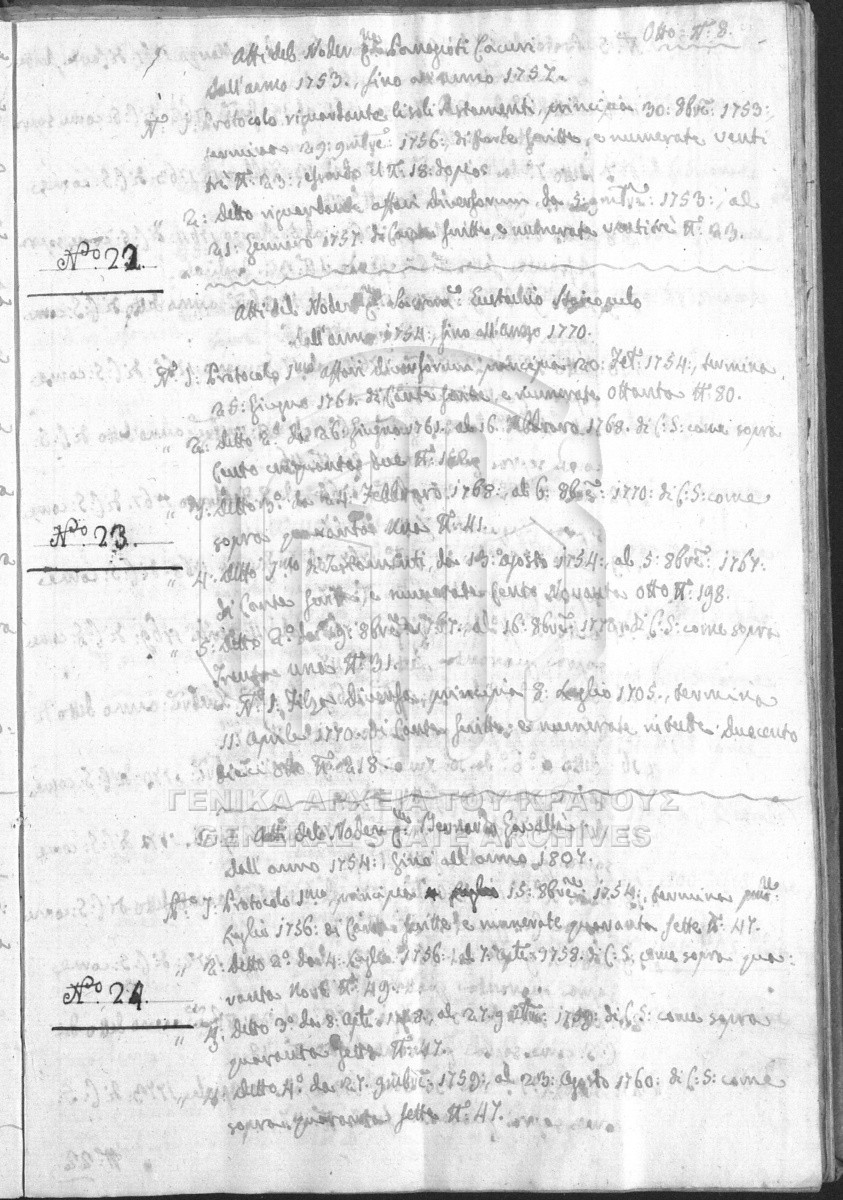 Otto: N.º 8.
Atti del Noder qm. Panagioti Cacuri
Dall'anno 1753., fino all'anno 1757.
Nº. 1: Protocolo riguardante li soli Testamenti, principia 30: 8bre: 1753:,
termina 29: 9mbre: 1756: di Carte scritte, e numerate venti
tre Nº: 23:, essendo il Nº: 18: dopio
" 2: Detto riguardante affari diversorum da 5: 9mbre: 1753:, al
21: Gennero 1757. di Carte scritte e numerate ventitre Nº: 23.
Nº. 22.
Atti del Noder qm. Eustachio
Dall'anno 1754:, fino all'anno 1770.
Nº. 1: Protocolo 1mo affari diversorum, principia 20: 1754:, termina
25: Giugno 1761. di Carte scritte, e numerate Ottanta Nº: 80.
" 2: Detto 2: da 26: Giugno 1761:, al 16. Febbraro 1768. di C: S: come sopra
Cento cinquanta Nº:
" 3: Detto 3º: da 24: Febbraro 1768:, al 6: 8bre: 1770: di C: S: come
sopra quaranta una Nº: 41.
Nº. 23.
" 4. Detto 1mo di Testamenti, da 13: Agosto 1754:, al 5: 8bre: 1767:
di Carte scritte, e numerate Cento Novanta otto Nº: 198.
" 5: Detto 2º: da 19: 8bre: 1767:, al 16: 8bre: 1770: di C: S: come sopra
Trenta una Nº: 31.
Nº: 1: Filza Diversa, principia 8: Luglio 1705., termina
11: Aprile 1770. di Carte scritte, e numerate in tutte Duecento
dieci otto Nº: 218:
ΓΕΝΙΚΑ ΑΡΧΕΙΑ ΤΟΥ ΚΡΑΤΟΥΣ
GENERAL STATE ARCHIVES
Atti del Noder qm. Bernardo
Dall'anno 1754:, fino all'anno 1807.
Nº. 1: Protocolo 1mo, principia 15: 8bre: 1754:, termina pmo:
Luglio 1756: di Carte scritte e numerate quaranta sette Nº: 47.
" 2: Detto 2º: da 4: Luglio 1756: al 7: 7bre: 1758. di C: S: come sopra qua:
ranta nove Nº: 49.
Nº. 24.
" 3: Detto 3º: da 8: 7bre: 1758, al 27. 9mbre: 1759: di C: S: come sopra
quaranta sette Nº: 47.
" 4: Detto 4º: da 27. 9mbre: 1759:, al 23: Agosto 1760: di C: S: come
sopra quaranta sette Nº: 47.